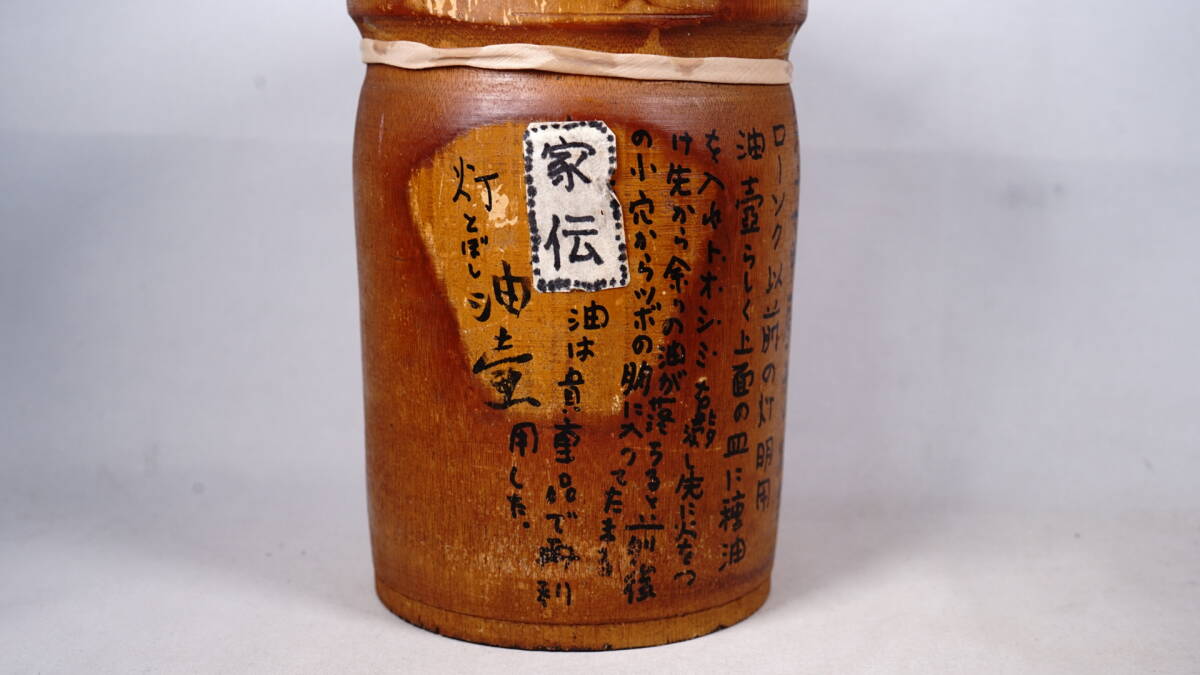 ローソク以前の灯明用
油壺らしく上面の皿に種油
を入れトオジミ 浸し先に火をつ
け先から余りの油が落ちると前後
の小穴からツボの胴に入ってたまる
家伝
油は貴重品で再利
用した。
灯とぼし油壺